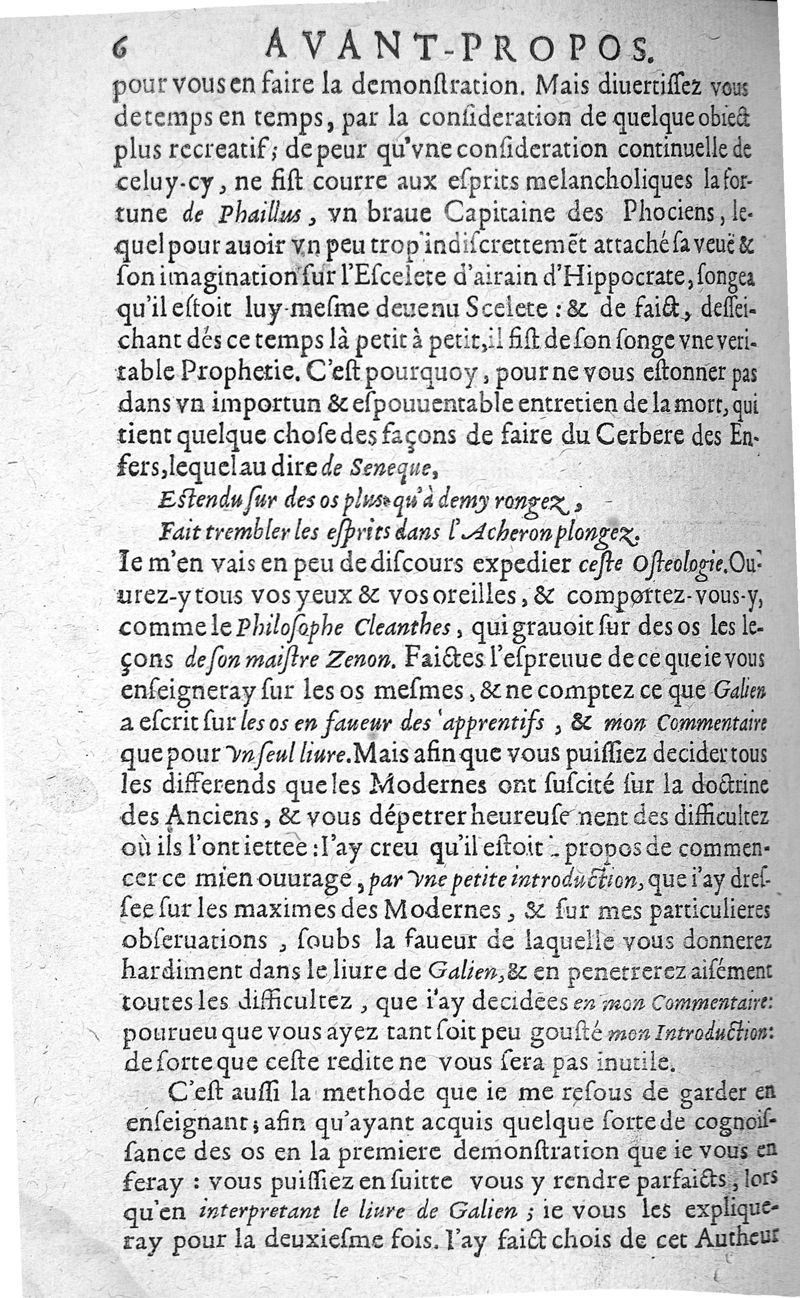 6 AVANT-PROPOS.
pour vous en faire la demonſtration. Mais diuertiſſez vous
de temps en temps, par la conſideration de quelque obiect
plus recreatif; de peur qu'vne conſideration continuelle de
celuy-cy, ne fiſt courre aux eſprits melancholiques la for-
tune de Phaillus, vn braue Capitaine des Phociens, le-
quel pour auoir vn peu trop indiſcrettemẽt attaché ſa veuë &
ſon imagination ſur l'Eſcelete d'airain d'Hippocrate, ſongea
qu'il eſtoit luy-meſme deuenu Scelete: & de faict, deſſei-
chant dés ce temps là petit à petit, il fiſt de ſon ſonge vne veri-
table Prophetie. C'eſt pourquoy, pour ne vous eſtonner pas
dans vn importun & eſpouuentable entretien de la mort, qui
tient quelque choſe des façons de faire du Cerbere des En-
fers, lequel au dire de Seneque,
Eſtendu ſur des os plus qu'à demy rongez,
Fait trembler les eſprits dans l'Acheron plongez.
Ie m'en vais en peu de diſcours expedier ceſte Oſteologie. Ou-
urez-y tous vos yeux & vos oreilles, & comportez-vous-y,
comme le Philoſophe Cleanthes, qui grauoit ſur des os les le-
çons de ſon maiſtre Zenon. Faictes l'eſpreuue de ce que ie vous
enſeigneray ſur les os meſmes, & ne comptez ce que Galien
a eſcrit ſur les os en faueur des apprentifs, & mon Commentaire
que pour vn ſeul liure. Mais afin que vous puiſſiez decider tous
les differends que les Modernes ont ſuſcité ſur la doctrine
des Anciens, & vous dépetrer heureuſe nent des difficultez
où ils l'ont iettee: I'ay creu qu'il eſtoit propos de commen-
cer ce mien ouurage, par vne petite introduction, que i'ay dreſ-
ſee ſur les maximes des Modernes, & ſur mes particulieres
obſeruations, ſoubs la faueur de laquelle vous donnerez
hardiment dans le liure de Galien, & en penetrerez aiſément
toutes les difficultez, que i'ay decidées en mon Commentaire:
pourueu que vous ayez tant ſoit peu gouſté mon Introduction:
de ſorte que ceſte redite ne vous ſera pas inutile.
C'eſt auſſi la methode que ie me reſous de garder en
enſeignant; afin qu'ayant acquis quelque ſorte de cognoiſ-
ſance des os en la premiere demonſtration que ie vous en
feray: vous puiſſiez en ſuitte vous y rendre parfaicts, lors
qu'en interpretant le liure de Galien; ie vous les explique-
ray pour la deuxieſme fois. I'ay faict chois de cet Autheur